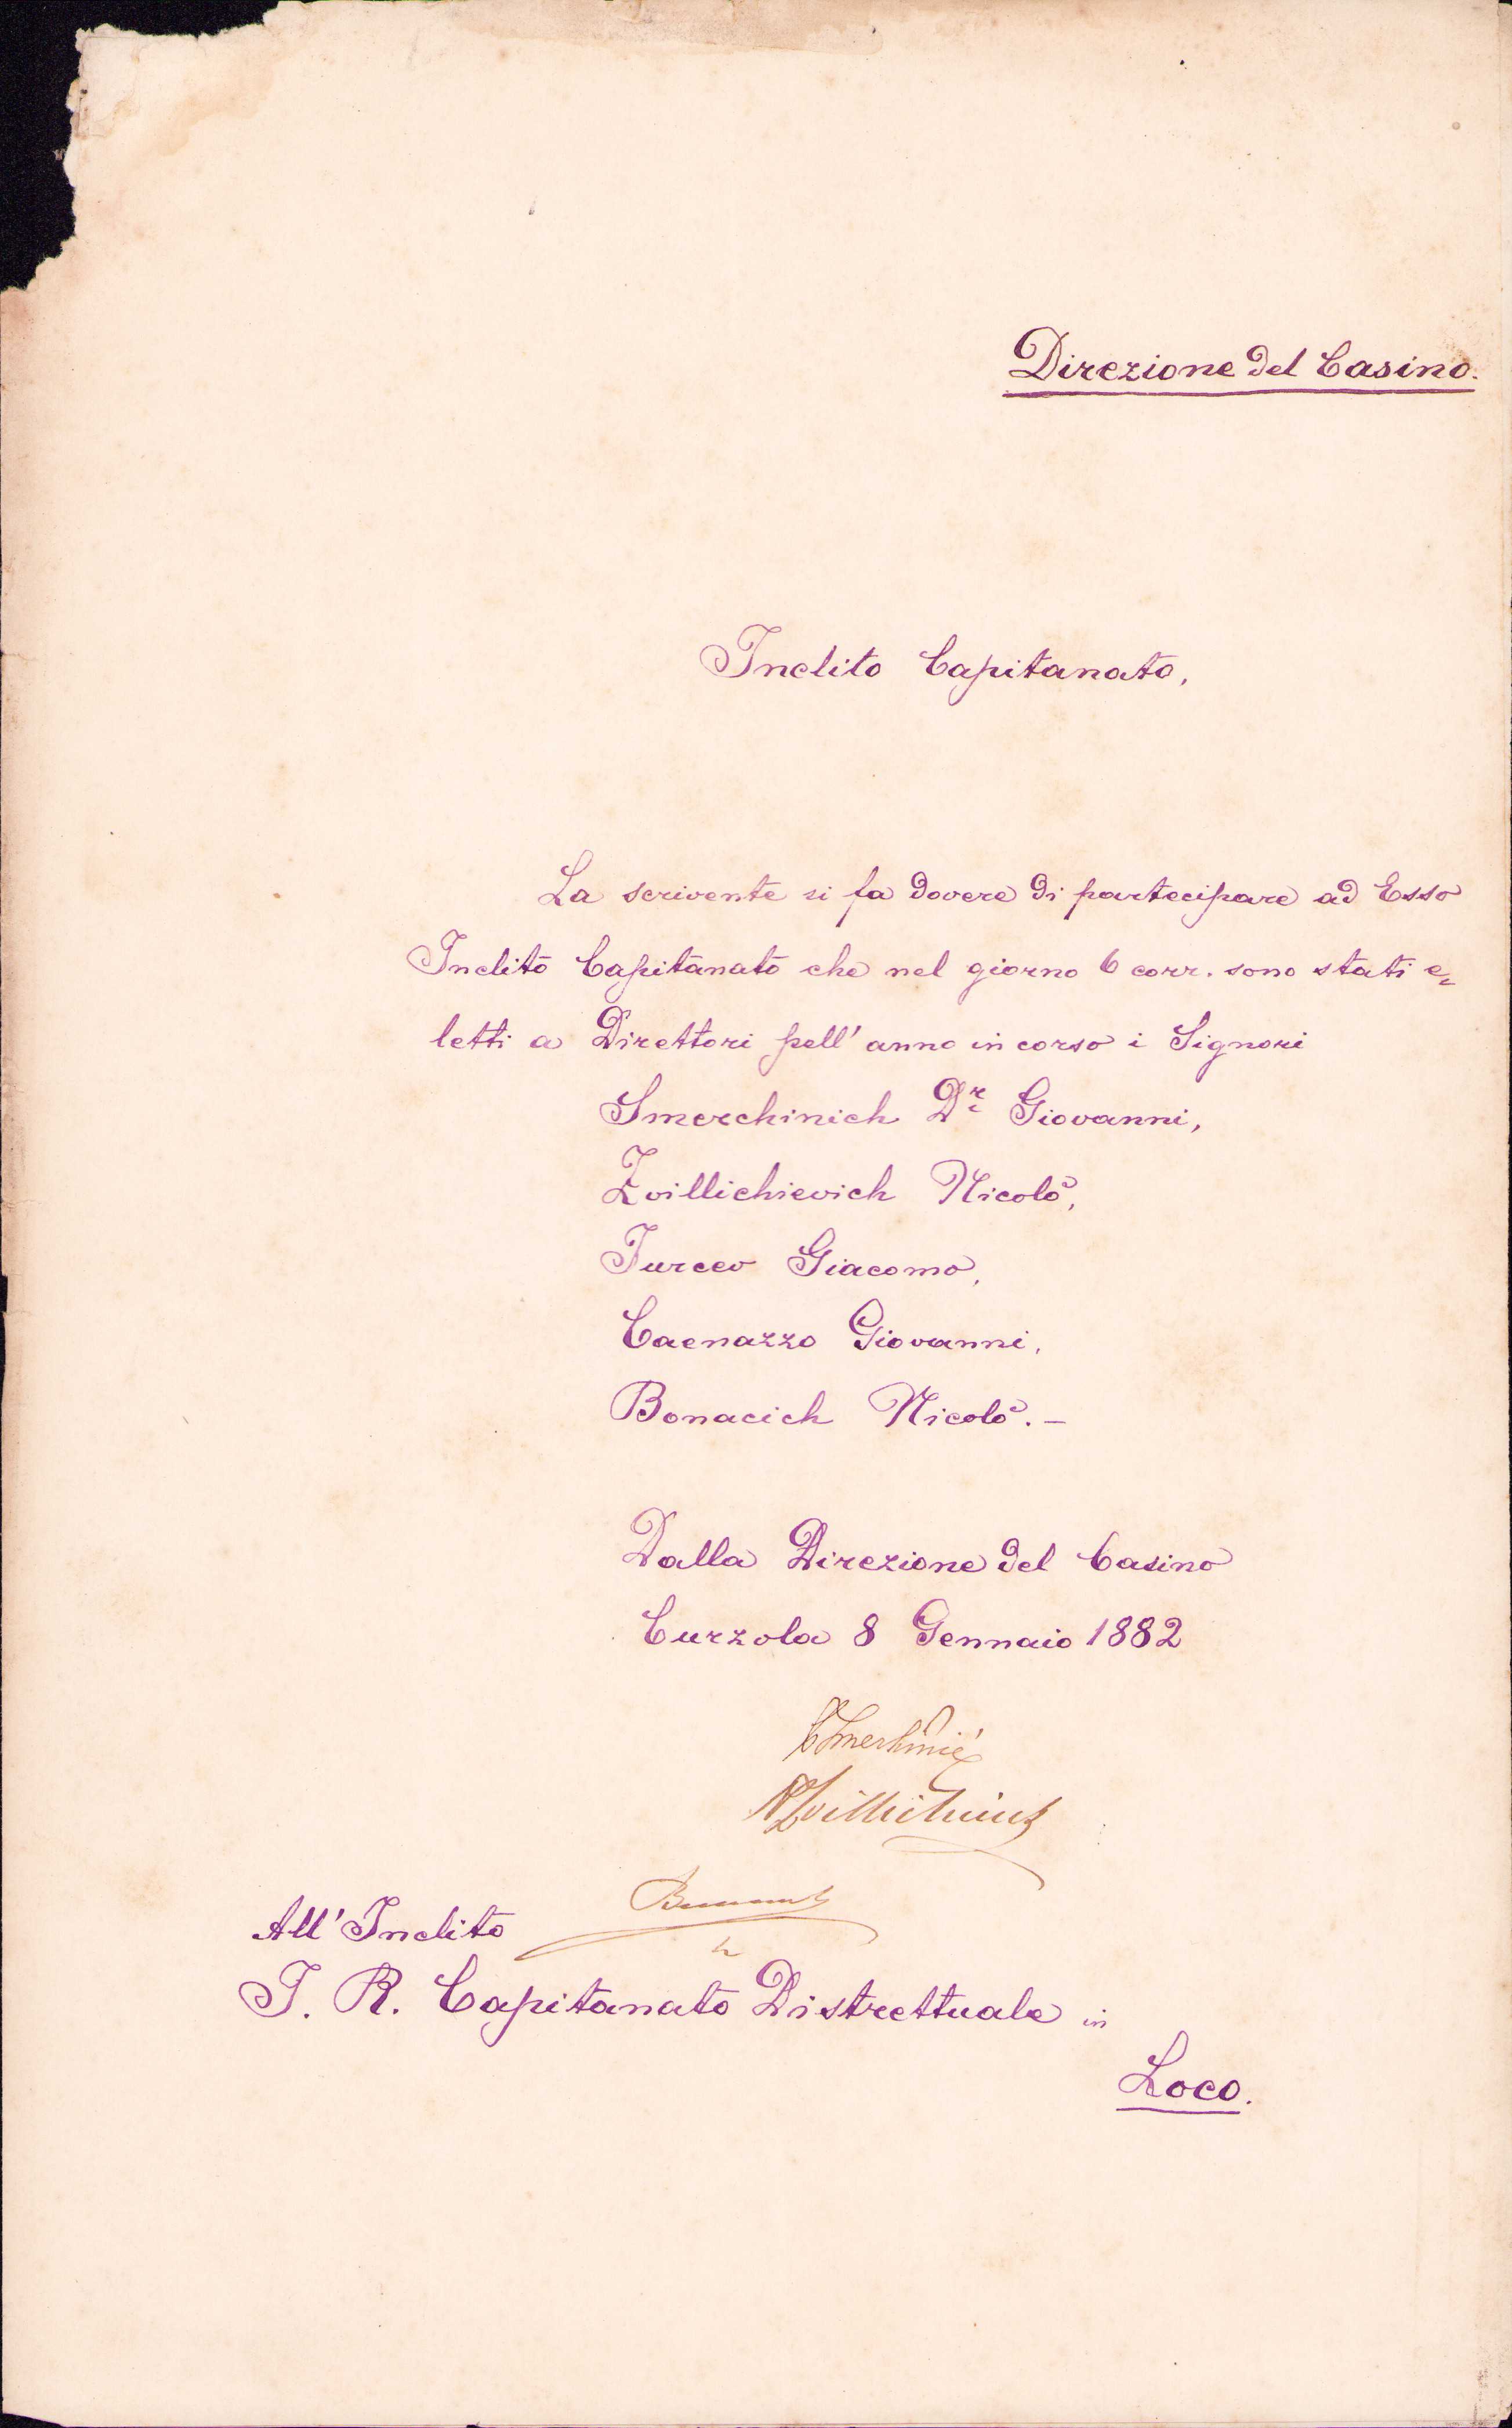 Direzione del Casino.
Inclito Capitanato,
La scrivente si fa dovere di partecipare ad Esso
Inclito Capitanato che nel giorno 6 corr. sono stati e=
letti a Direttori pell' anno in corso i Signori
Smerchinich Dr Giovanni,
Zvillichievich Nicolò,
Jurcev Giacomo,
Caenazzo Giovanni,
Bonacich Nicolò. –
Dalla Direzione del Casino
Curzola 8 Gennaio 1882
All' Inclito
I. R. Capitanato Distrettuale in
Loco.